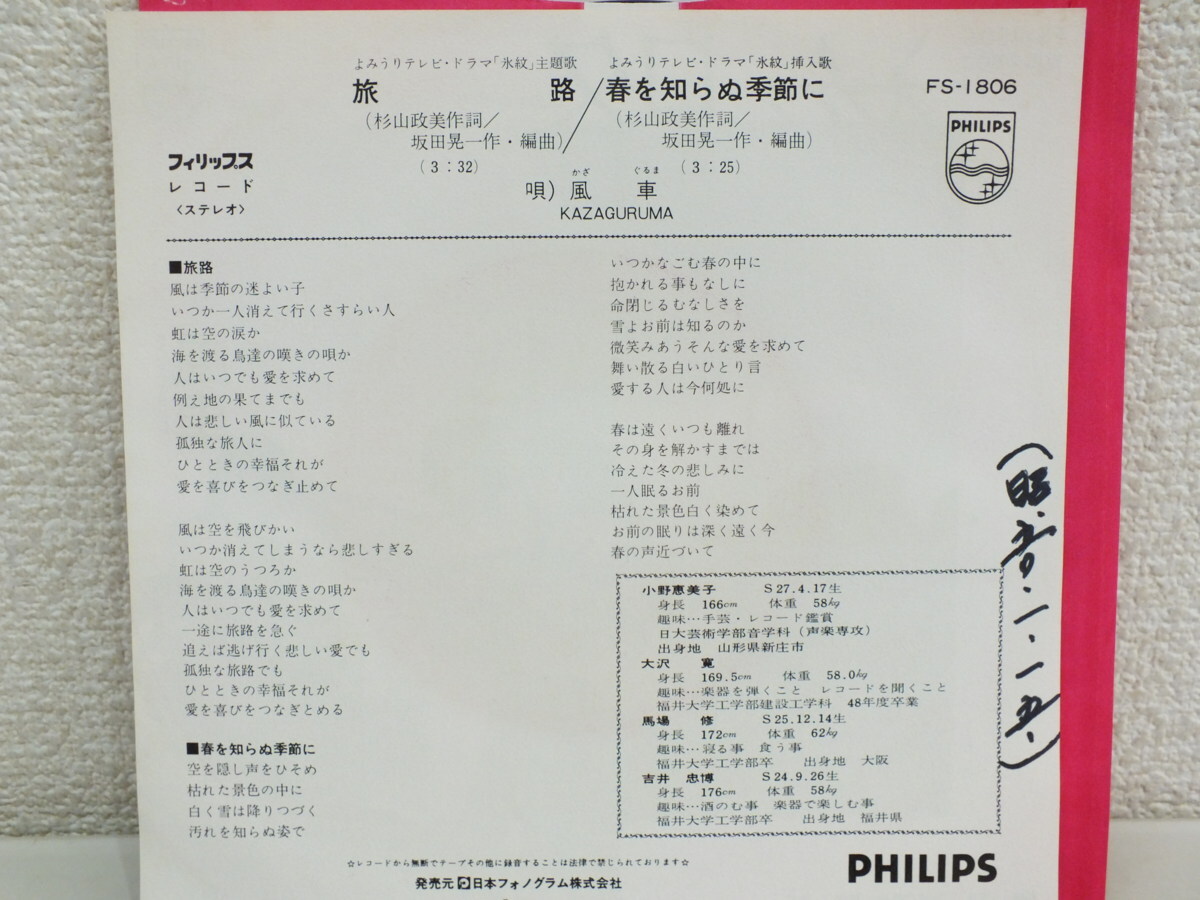 よみうりテレビ・ドラマ「氷紋」主題歌
旅路
(杉山政美作詞/
坂田晃一作・編曲)
(3:32)
よみうりテレビ・ドラマ「氷紋」挿入歌
春を知らぬ季節に
(杉山政美作詞/
坂田晃一作・編曲)
(3:25)
かざ ぐるま
唄)風車
KAZAGURUMA
フィリップス
レコード
〈ステレオ〉
FS-1806
PHILIPS
■旅路
風は季節の迷よい子
いつか一人消えて行くさすらい人
虹は空の涙か
海を渡る鳥達の嘆きの唄か
人はいつでも愛を求めて
例え地の果てまでも
人は悲しい風に似ている
孤独な旅人に
ひとときの幸福それが
愛を喜びをつなぎ止めて
風は空を飛びかい
いつか消えてしまうなら悲しすぎる
虹は空のうつろか
海を渡る鳥達の嘆きの唄か
人はいつでも愛を求めて
一途に旅路を急ぐ
追えば逃げ行く悲しい愛でも
孤独な旅路でも
ひとときの幸福それが
愛を喜びをつなぎとめる
■春を知らぬ季節に
空を隠し声をひそめ
枯れた景色の中に
白く雪は降りつづく
汚れを知らぬ姿で
いつかなごむ春の中に
抱かれる事もなしに
命閉じるむなしさを
雪よお前は知るのか
微笑みあうそんな愛を求めて
舞い散る白いひとり言
愛する人は今何処に
春は遠くいつも離れ
その身を解かすまでは
冷えた冬の悲しみに
一人眠るお前
枯れた景色白く染めて
お前の眠りは深く遠く今
春の声近づいて
小野恵美子 S27.4.17生
身長 166cm 体重 58kg
趣味…手芸・レコード鑑賞
日大芸術学部音学科(声楽専攻)
出身地 山形県新庄市
大沢 寛
身長 169.5cm 体重 58.0kg
趣味…楽器を弾くこと レコードを聞くこと
福井大学工学部建設工学科 48年度卒業
馬場 修 S25.12.14生
身長 172cm 体重 62kg
趣味…寝る事 食う事
福井大学工学部卒 出身地 大阪
吉井 忠博 S24.9.26生
身長 176cm 体重 58kg
趣味…酒のむ事 楽器で楽しむ事
福井大学工学部卒 出身地 福井県
(昭.五〇.一.一五.)
☆レコードから無断でテープその他に録音することは法律で禁じられております☆
発売元 日本フォノグラム株式会社
PHILIPS